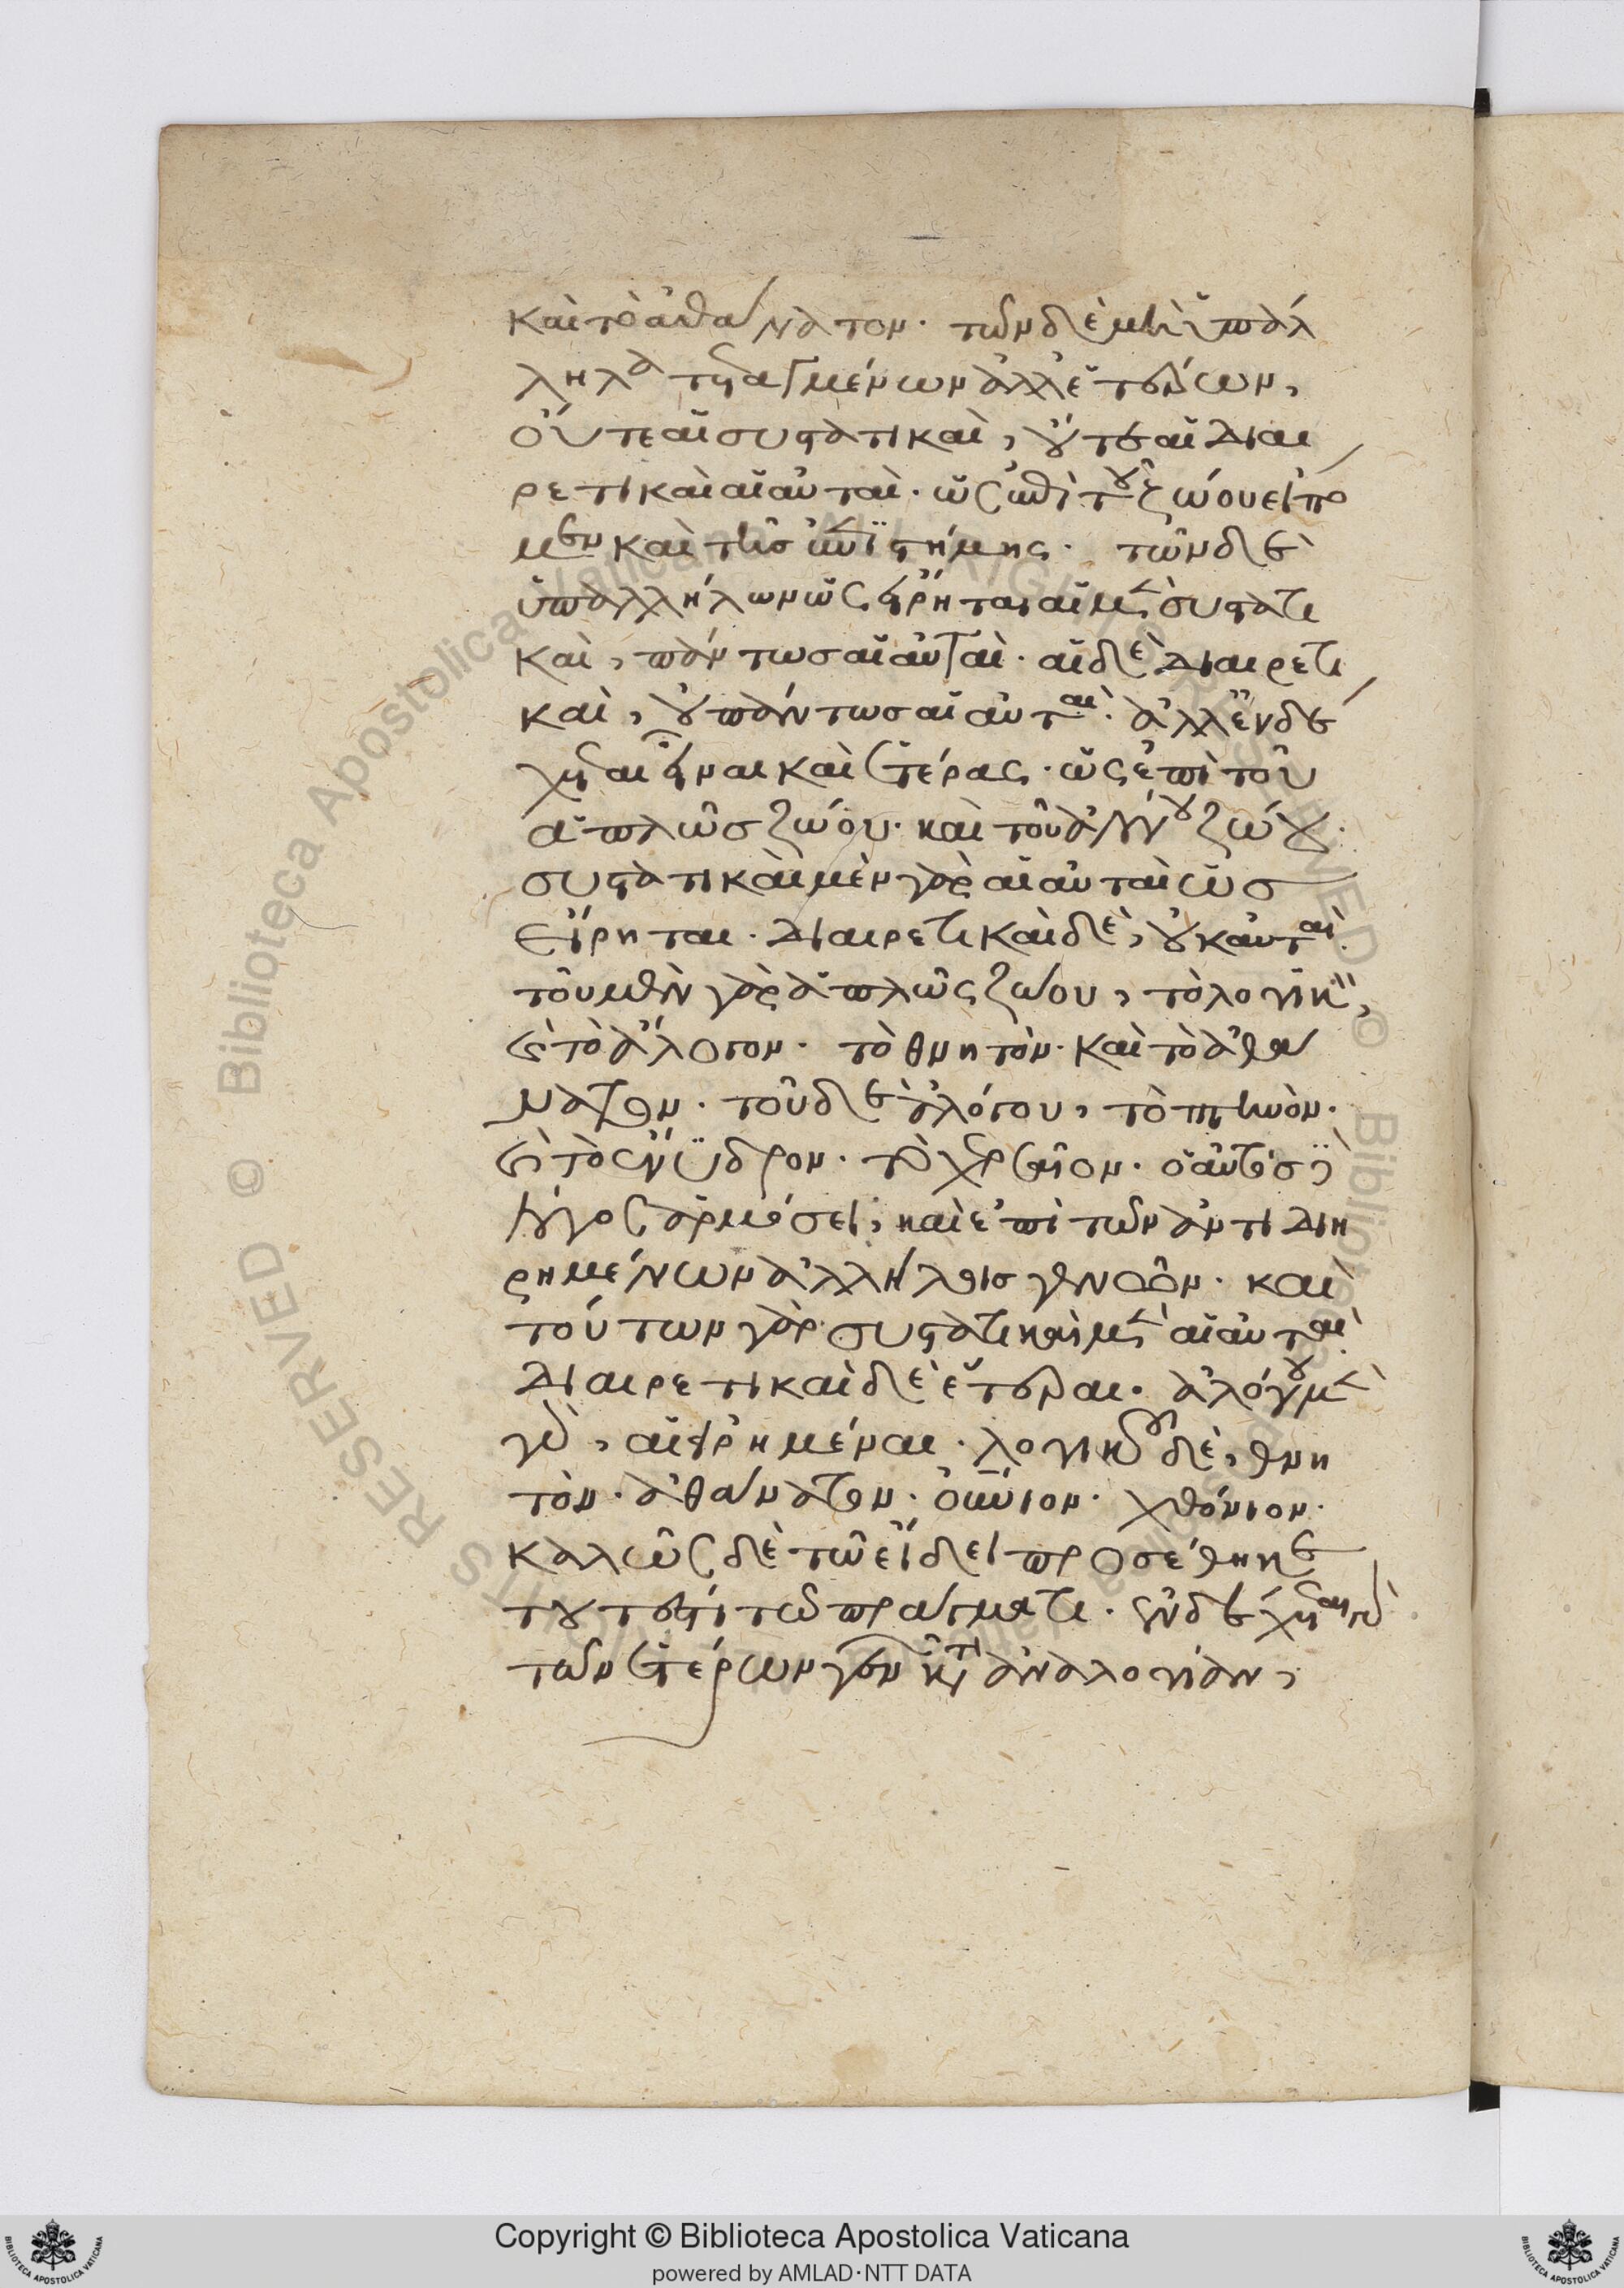 καὶ τὸ ἀθάνατον. τῶν δὲ μὴ ὑπάλ
ληλα τεταγμένων ἀλλ' ἑτέρων,
οὔτε αἱ συστατικαὶ, οὔτε αἱ διαι
ρετικαὶ αἱ αὐταὶ. ὡς ἐπὶ τοῦ ζώου εἴπο
μεν καὶ τῆς ἐπιστήμης. τῶν δὲ
ὑπαλλήλων ὡς εἴρηται αἱ μὲν συστατι
καὶ, πάντως αἱ αὐταὶ. αἱ δὲ διαιρετι
καὶ, οὐ πάντως αἱ αὐταὶ. ἀλλ' ἐνδέ
χεται εἶναι καὶ ἑτέρας. ὡς ἐπὶ τοῦ
ἁπλῶς ζώου. καὶ τοῦ ἀλόγου ζώου.
συστατικαὶ μὲν γὰρ αἱ αὐταὶ ὡς
εἴρηται. διαιρετικαὶ δὲ, οὐκ αὐταὶ.
τοῦ μὲν γὰρ ἁπλῶς ζώου, τὸ λογικὸν,
καὶ τὸ ἄλογον. τὸ θνητὸν. καὶ τὸ ἀθά
νατον. τοῦ δὲ ἀλόγου, τὸ πτηνὸν.
καὶ τὸ ἔνυδρον. τὸ χερσαῖον. ὁ αὐτὸς δὲ
λόγος ἁρμόσει, καὶ ἐπὶ τῶν ἀντιδιη
ρημένων ἀλλήλοις γενῶν. καὶ
τούτων γὰρ συστατικαὶ μὲν αἱ αὐταὶ
διαιρετικαὶ δὲ ἕτεραι. ἀλόγου μὲν
γὰρ, αἱ εἰρημέναι. λογικοῦ δὲ, θνη
τὸν. ἀθάνατον. οὐράνιον. χθόνιον.
καλῶς δὲ τῶ εἴδει προσέθηκε
τουτέστι τῶ πράγματι. ἐνδέχεται γὰρ
τῶν ἑτέρων γενῶν κατὰ ἀναλογίαν,